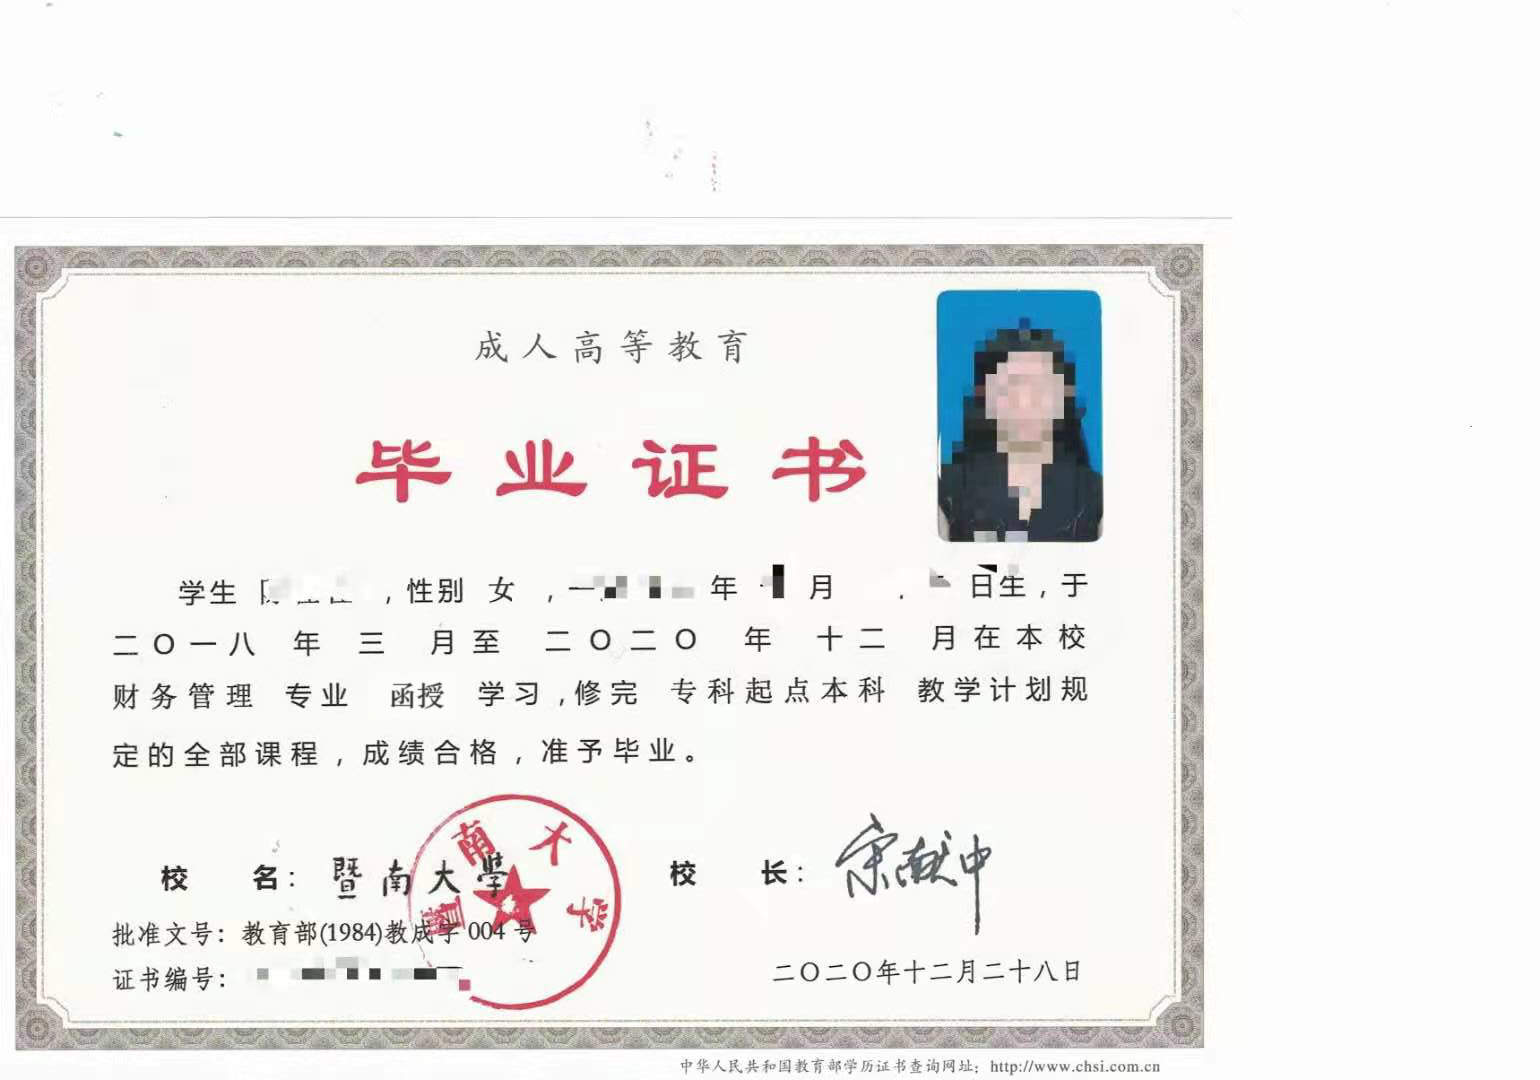 成人高等教育
毕业证书
学生 ，性别 女 ，一 年 月 日生，于
二〇一八 年 三 月至 二〇二〇 年 十二 月在本校
财务管理 专业 函授 学习，修完 专科起点本科 教学计划规
定的全部课程，成绩合格，准予毕业。
校 名：暨南大學
校 长：宋献中
暨南大学
批准文号：教育部(1984)教成字 004 号
证书编号：
二〇二〇年十二月二十八日
中华人民共和国教育部学历证书查询网址：http://www.chsi.com.cn